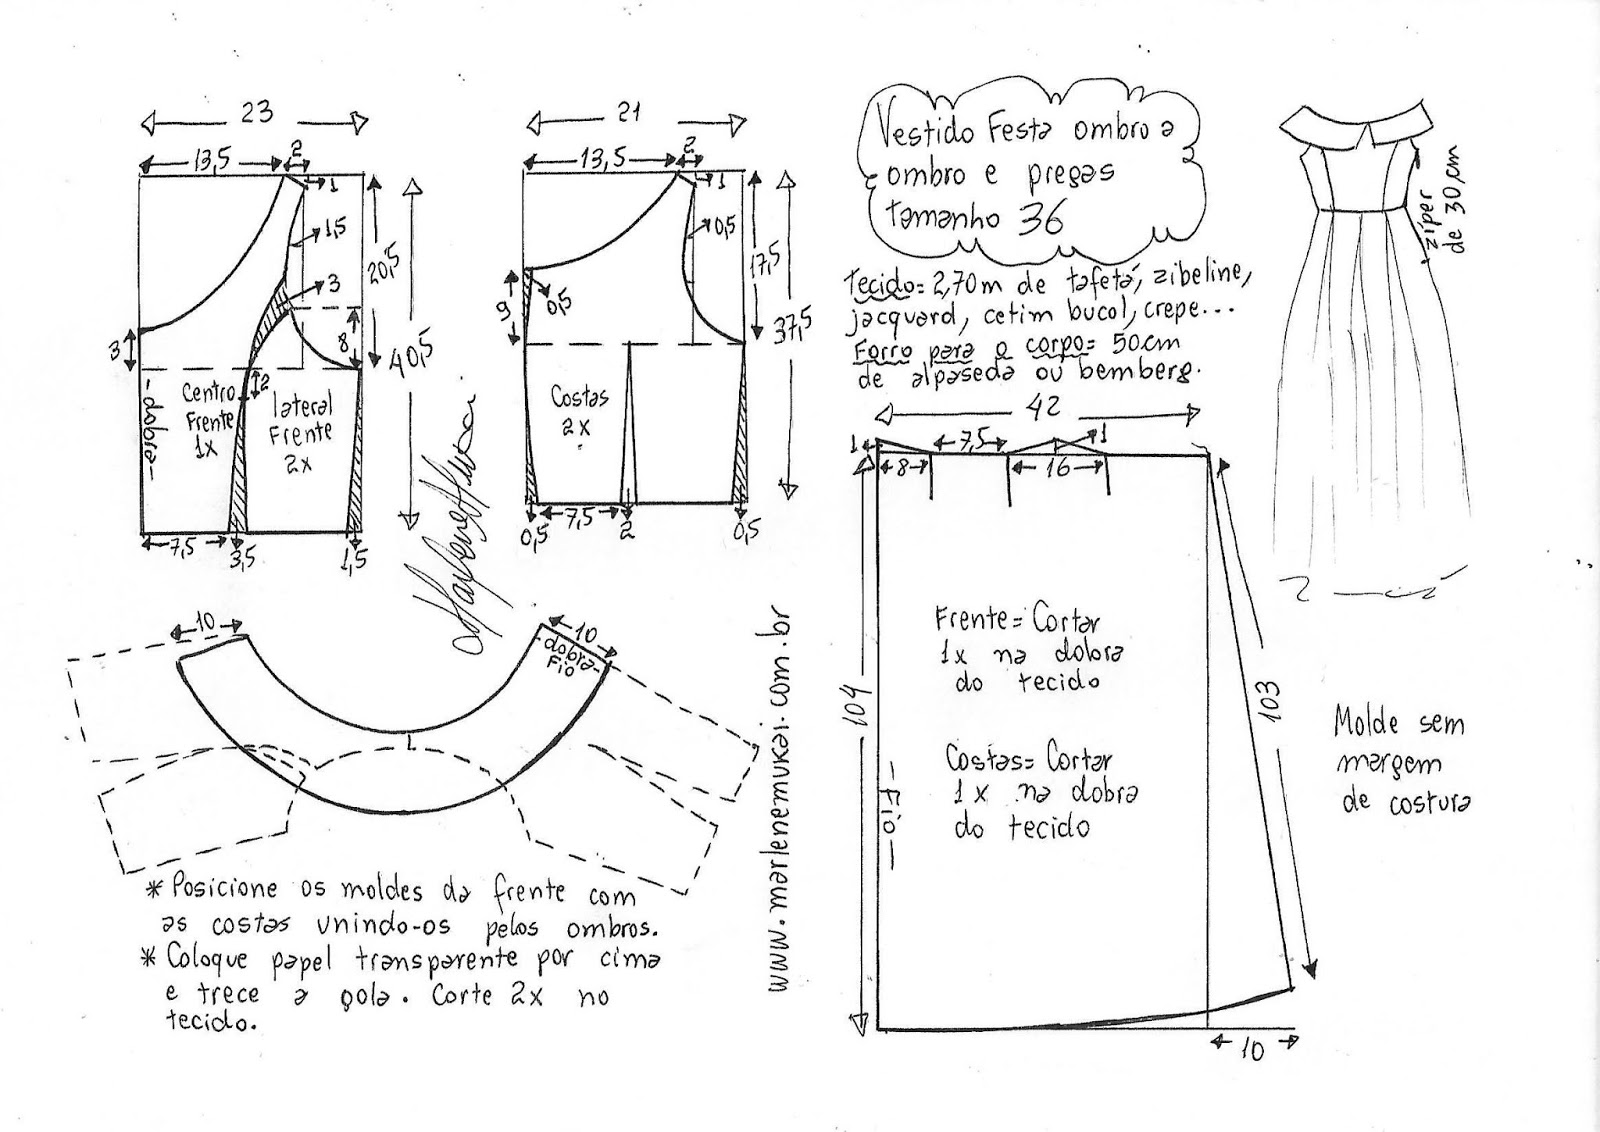 23
13,5
2
1
1,5
20,5
3
3
8
40,5
2
Centro
Frente
1x
lateral
Frente
2x
-dobra-
7,5
3,5
1,5
21
13,5
2
1
0,5
17,5
9
0,5
37,5
Costas
2x
0,5
7,5
2
0,5
Vestido Festa ombro a
ombro e pregas
tamanho 36
Tecido= 2,70m de tafetá, zibeline,
jacquard, cetim bucol, crepe...
Forro para o corpo= 50cm
de alpaseda ou bemberg.
zíper
de 30,cm
42
1
7,5
1
8
16
104
103
Frente= Cortar
1x na dobra
do tecido
Costas= Cortar
1x na dobra
do tecido
- Fio -
10
Molde sem
margem
de costura
10
10
-dobra-
Fio
* Posicione os moldes da frente com
as costas unindo-os pelos ombros.
* Coloque papel transparente por cima
e trece a gola. Corte 2x no
tecido.
www.marlenemukai.com.br
Marlene Mukai